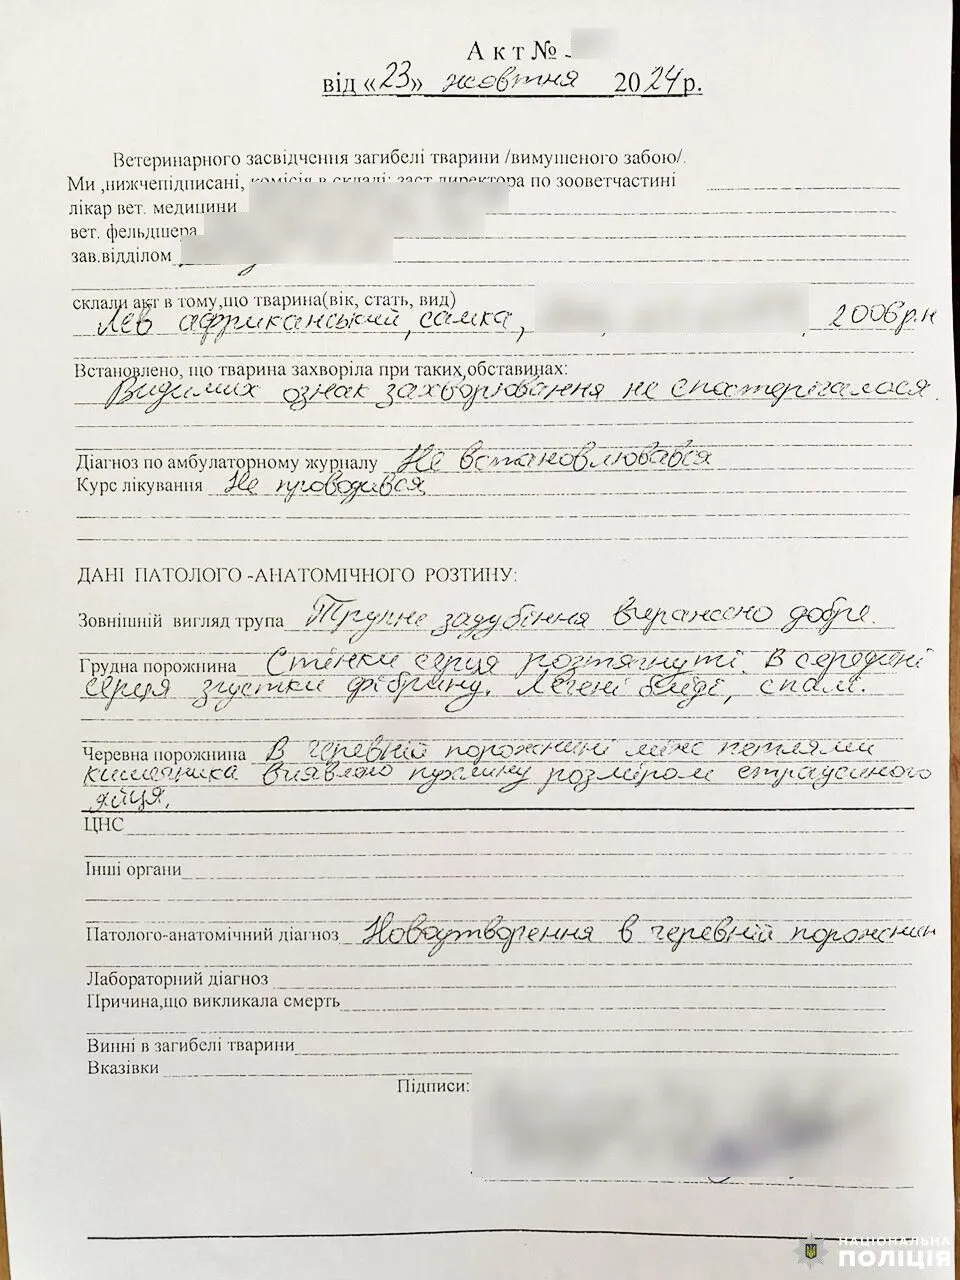 Акт №
від «23» жовтня 2024 р.
Ветеринарного засвідчення загибелі тварини /вимушеного забою/.
Ми ,нижчепідписані, комісія в складі: заст директора по зооветчастині
лікар вет. медицини
вет. фельдшера
зав.відділом
склали акт в тому,що тварина(вік, стать, вид)
Лев африканський, самка, 2006 р.н
Встановлено, що тварина захворіла при таких обставинах:
Видимих ознак захворювання не спостерігалося.
Діагноз по амбулаторному журналу Не встановлювався
Курс лікування Не проводився
ДАНІ ПАТОЛОГО -АНАТОМІЧНОГО РОЗТИНУ:
Зовнішній вигляд трупа Трупне задубіння виражено добре.
Грудна порожнина Стінки серця розтягнуті. В середині
серця згустки фібрину. Легені бліді, спалі.
Черевна порожнина В черевній порожнині між петлями
кишечника виявлено пухлину розміром страусиного
яйця.
ЦНС
Інші органи
Патолого-анатомічний діагноз Новоутворення в черевній порожнин
Лабораторний діагноз
Причина,що викликала смерть
Винні в загибелі тварини
Вказівки
Підписи:
НАЦІОНАЛЬНА
ПОЛІЦІЯ